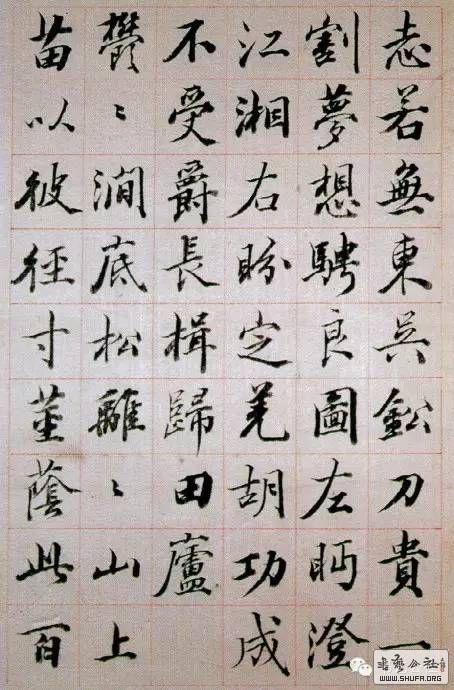 志若無東吳鈆刀貴一
割夢想騁良圖左眄澄
江湘右盼定羌胡功成
不受爵長揖歸田廬
鬱〻澗底松離〻山上
苗以彼徑寸莖蔭此百
書藝公社
WWW.SHUFA.ORG